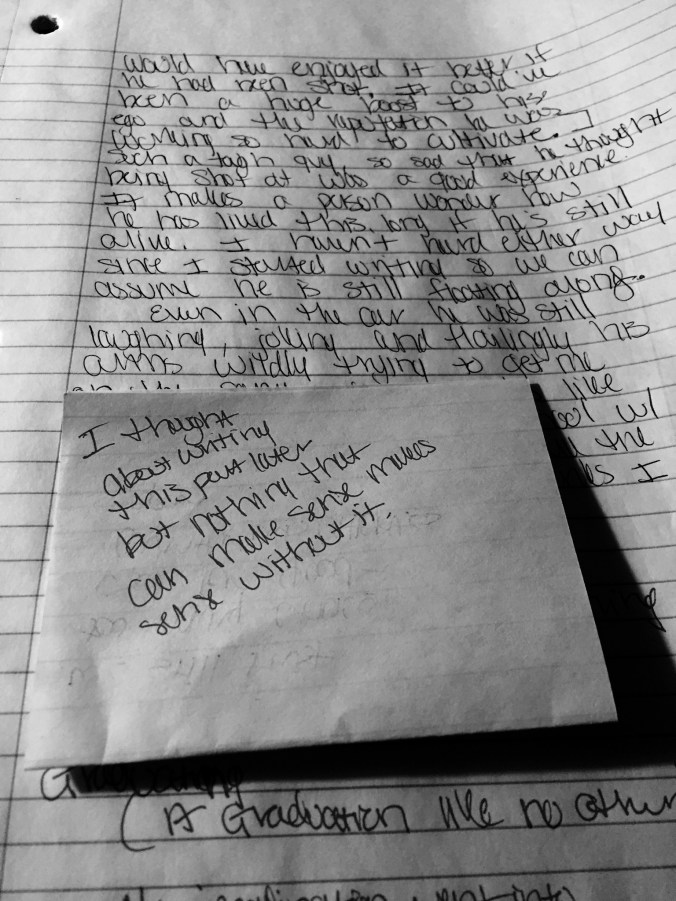 would have enjoyed it better if
he had been shot. It could've
been a huge boost to his
ego and the reputation he was
working so hard to cultivate.
Such a tough guy, so sad that he thought
being shot at was a good experience.
It makes a person wonder how
he has lived this long if he's still
alive. I haven't heard either way
since I started writing so we can
assume he is still floating along.
Even in the car he was still
laughing, joking and flailingly his
arms wildly trying to get me
like
ool w/
the
I
I thought
about writing
this part later
but nothing that
can make sense makes
sense without it.
(A Graduation like no other